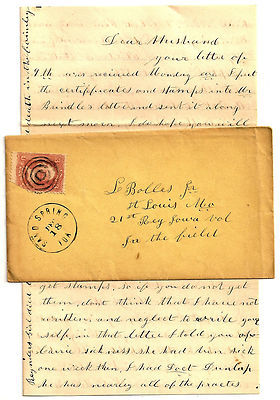 Dear Husband
your letter of
9th was received Monday eve I put
the certificate and stamps into Mr
Brindles letter and sent it along
next morn I do hope you will
L Bolles Jr
St Louis Mo
21st Reg Iowa Vol
In the field
SAND SPRING
18
IOA
get stamps. So if you do not get
them, dont think that I have not
written and neglect to write your
self, in that letter I told you of
Carrie sickness she had been sick
one week then, I had Doct Dunlap
he has nearly all of the practes
death in the family